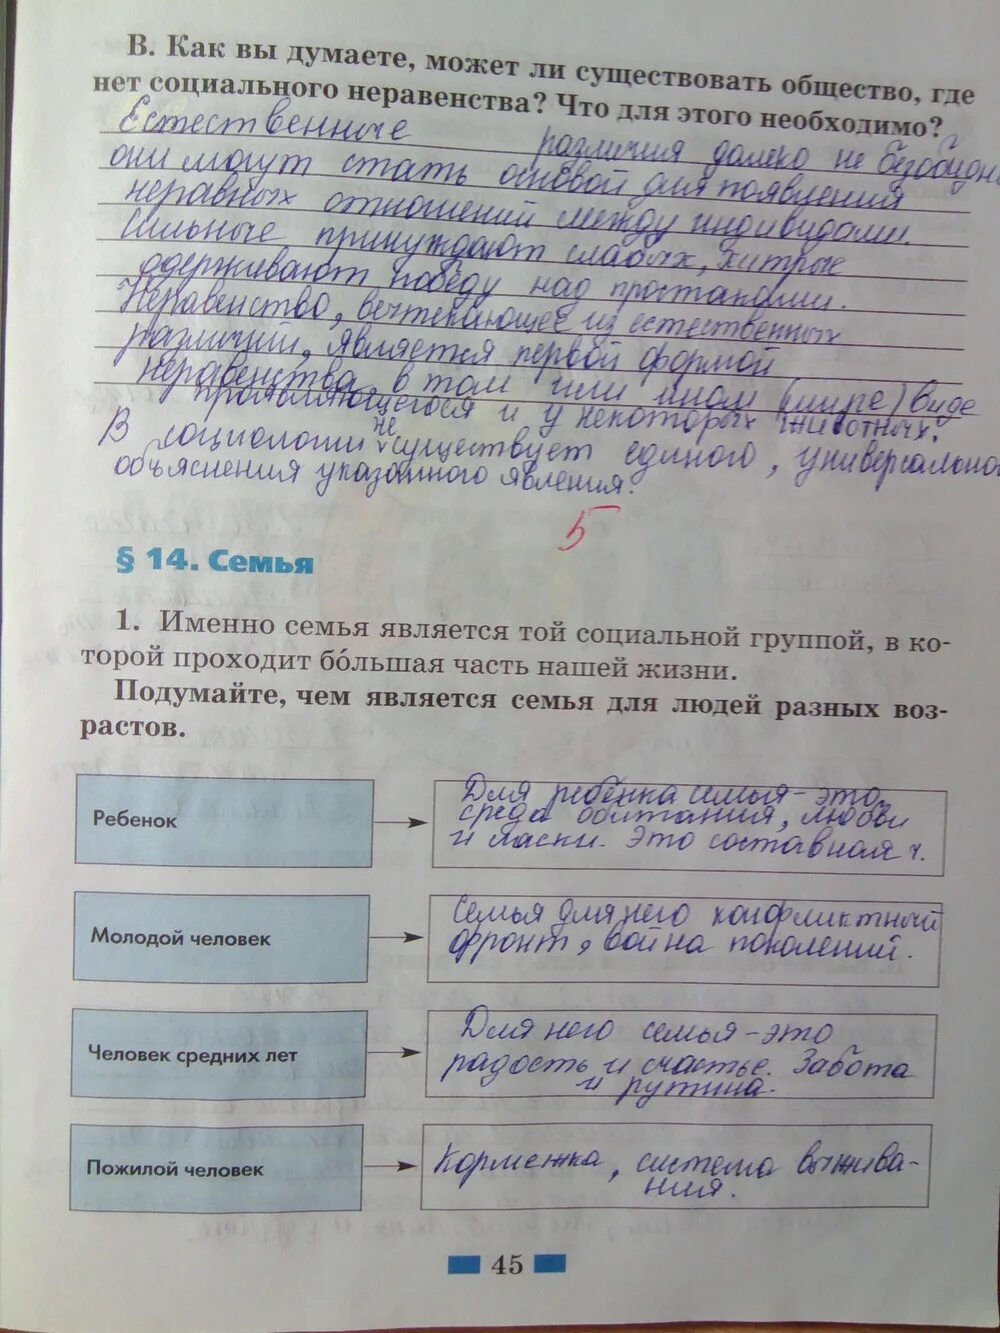 В. Как вы думаете, может ли существовать общество, где
нет социального неравенства? Что для этого необходимо?
Естественные различия далеко не безобидн
они могут стать основой для появления
неравных отношений между индивидами.
Сильные принуждают слабых, хитрые
одерживают победу над простаками.
Неравенство, вытекающее из естественных
различий, является первой формой
неравенства, в том или ином (мире) виде
проявляющегося и у некоторых животных.
В социологии не существует единого, универсально
объяснения указанного явления.
5
§ 14. Семья
1. Именно семья является той социальной группой, в ко-
торой проходит бо́льшая часть нашей жизни.
Подумайте, чем является семья для людей разных воз-
растов.
Ребенок
Для ребёнка семья - это
среда обитания, любви
и ласки. Это составная ч.
Молодой человек
Семья для него конфликтный
фронт, война поколений.
Человек средних лет
Для него семья - это
радость и счастье. Забота
и рутина.
Пожилой человек
Кормежка, система выжива-
ния.
45